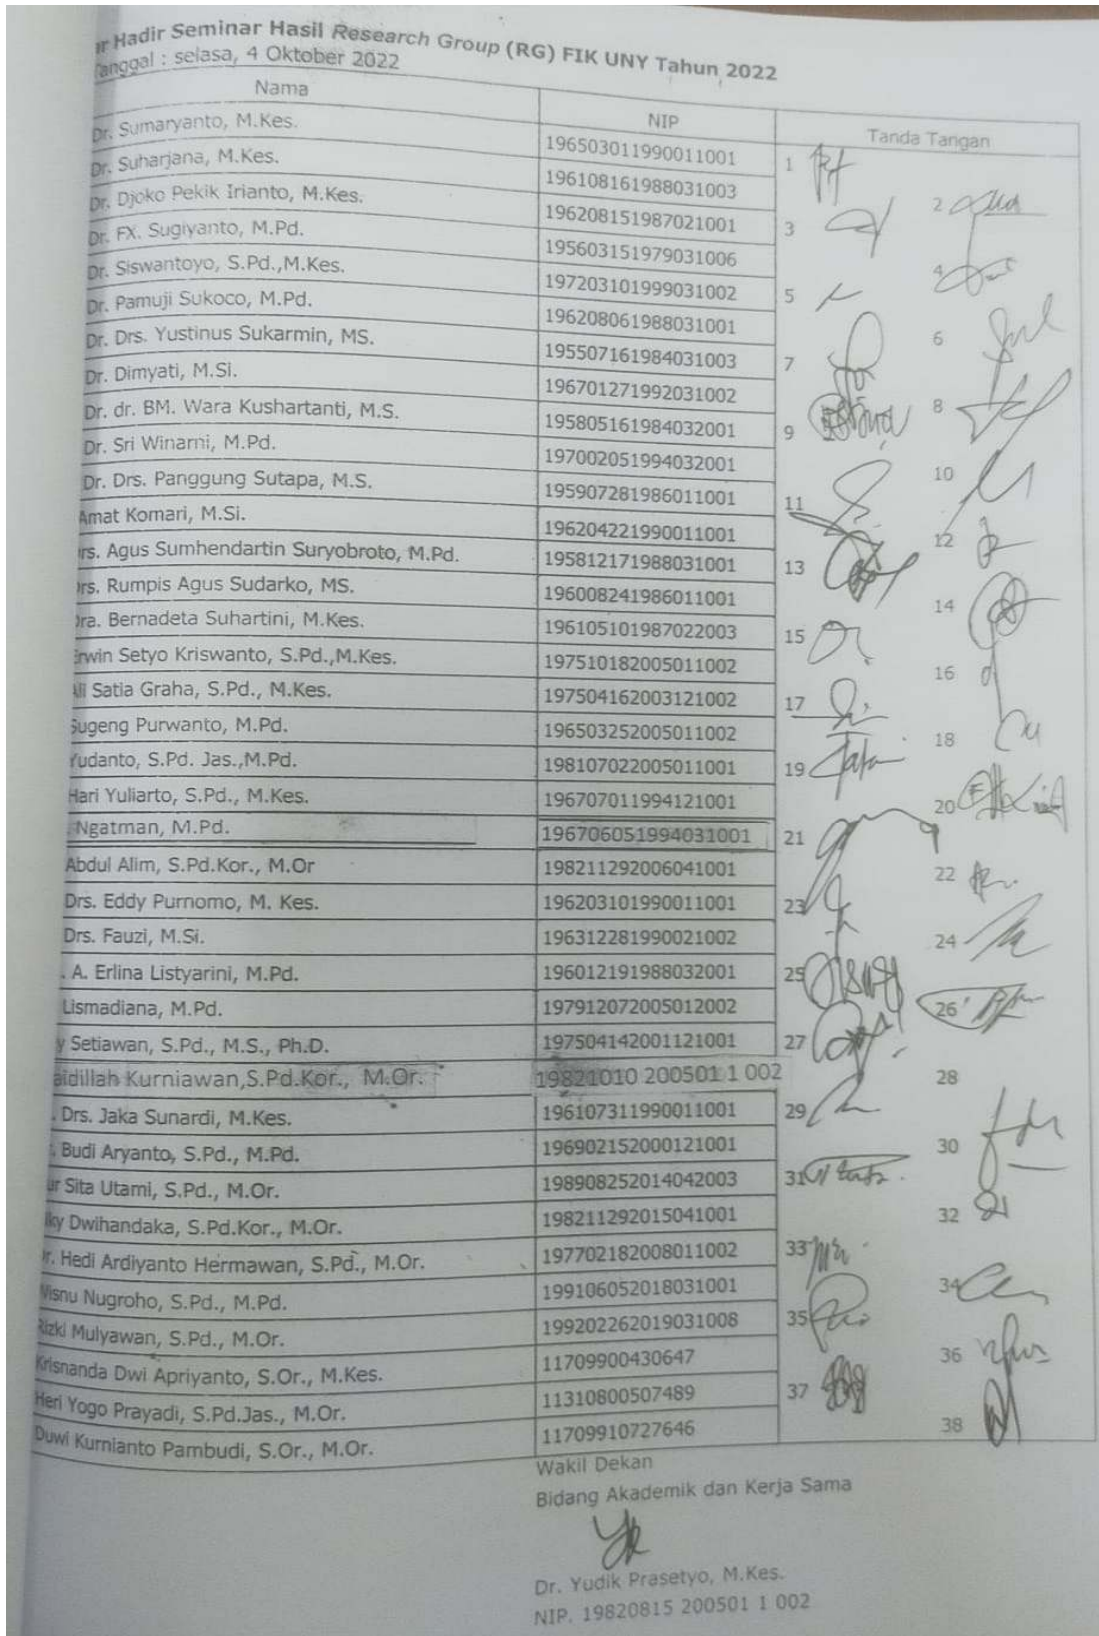 Hadir Seminar Hasil Research Group (RG) FIK UNY Tahun 2022
anggal : selasa, 4 Oktober 2022
Nama NIP Tanda Tangan
Dr. Sumaryanto, M.Kes. 196503011990011001 1
Dr. Suharjana, M.Kes. 196108161988031003 2
Dr. Djoko Pekik Irianto, M.Kes. 196208151987021001 3
Dr. FX. Sugiyanto, M.Pd. 195603151979031006 4
Dr. Siswantoyo, S.Pd.,M.Kes. 197203101999031002 5
Dr. Pamuji Sukoco, M.Pd. 196208061988031001 6
Dr. Drs. Yustinus Sukarmin, MS. 195507161984031003 7
Dr. Dimyati, M.Si. 196701271992031002 8
Dr. dr. BM. Wara Kushartanti, M.S. 195805161984032001 9
Dr. Sri Winarni, M.Pd. 197002051994032001 10
Dr. Drs. Panggung Sutapa, M.S. 195907281986011001 11
Amat Komari, M.Si. 196204221990011001 12
rs. Agus Sumhendartin Suryobroto, M.Pd. 195812171988031001 13
rs. Rumpis Agus Sudarko, MS. 196008241986011001 14
ra. Bernadeta Suhartini, M.Kes. 196105101987022003 15
Erwin Setyo Kriswanto, S.Pd.,M.Kes. 197510182005011002 16
Ali Satia Graha, S.Pd., M.Kes. 197504162003121002 17
Sugeng Purwanto, M.Pd. 196503252005011002 18
Yudanto, S.Pd. Jas.,M.Pd. 198107022005011001 19
Hari Yuliarto, S.Pd., M.Kes. 196707011994121001 20
Ngatman, M.Pd. 196706051994031001 21
Abdul Alim, S.Pd.Kor., M.Or 198211292006041001 22
Drs. Eddy Purnomo, M. Kes. 196203101990011001 23
Drs. Fauzi, M.Si. 196312281990021002 24
. A. Erlina Listyarini, M.Pd. 196012191988032001 25
Lismadiana, M.Pd. 197912072005012002 26
y Setiawan, S.Pd., M.S., Ph.D. 197504142001121001 27
aidillah Kurniawan,S.Pd.Kor., M.Or. 19821010 200501 1 002 28
. Drs. Jaka Sunardi, M.Kes. 196107311990011001 29
. Budi Aryanto, S.Pd., M.Pd. 196902152000121001 30
ur Sita Utami, S.Pd., M.Or. 198908252014042003 31
ky Dwihandaka, S.Pd.Kor., M.Or. 198211292015041001 32
r. Hedi Ardiyanto Hermawan, S.Pd., M.Or. 197702182008011002 33
Wisnu Nugroho, S.Pd., M.Pd. 199106052018031001 34
Rizki Mulyawan, S.Pd., M.Or. 199202262019031008 35
Krisnanda Dwi Apriyanto, S.Or., M.Kes. 11709900430647 36
Heri Yogo Prayadi, S.Pd.Jas., M.Or. 11310800507489 37
Duwi Kurnianto Pambudi, S.Or., M.Or. 11709910727646 38
Wakil Dekan
Bidang Akademik dan Kerja Sama
Dr. Yudik Prasetyo, M.Kes.
NIP. 19820815 200501 1 002